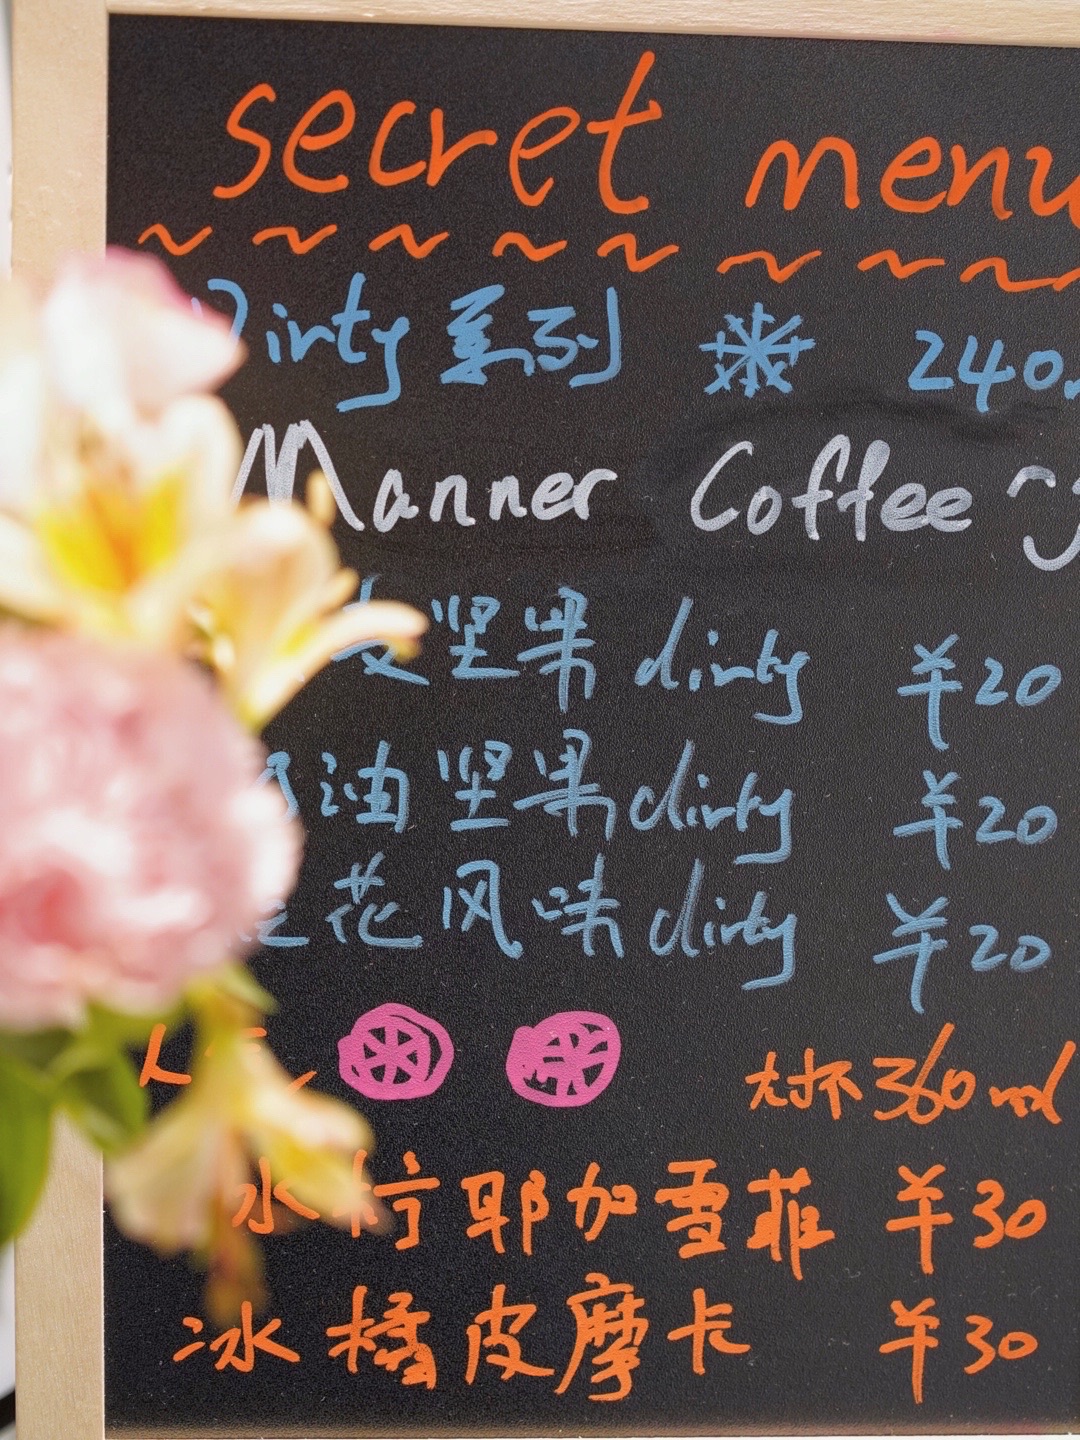 secret menu
Dirty系列 240
Manner Coffee
坚果 dirty ¥20
油坚果dirty ¥20
花风味dirty ¥20
大杯360ml
冰柠耶加雪菲 ¥30
冰橘皮摩卡 ¥30